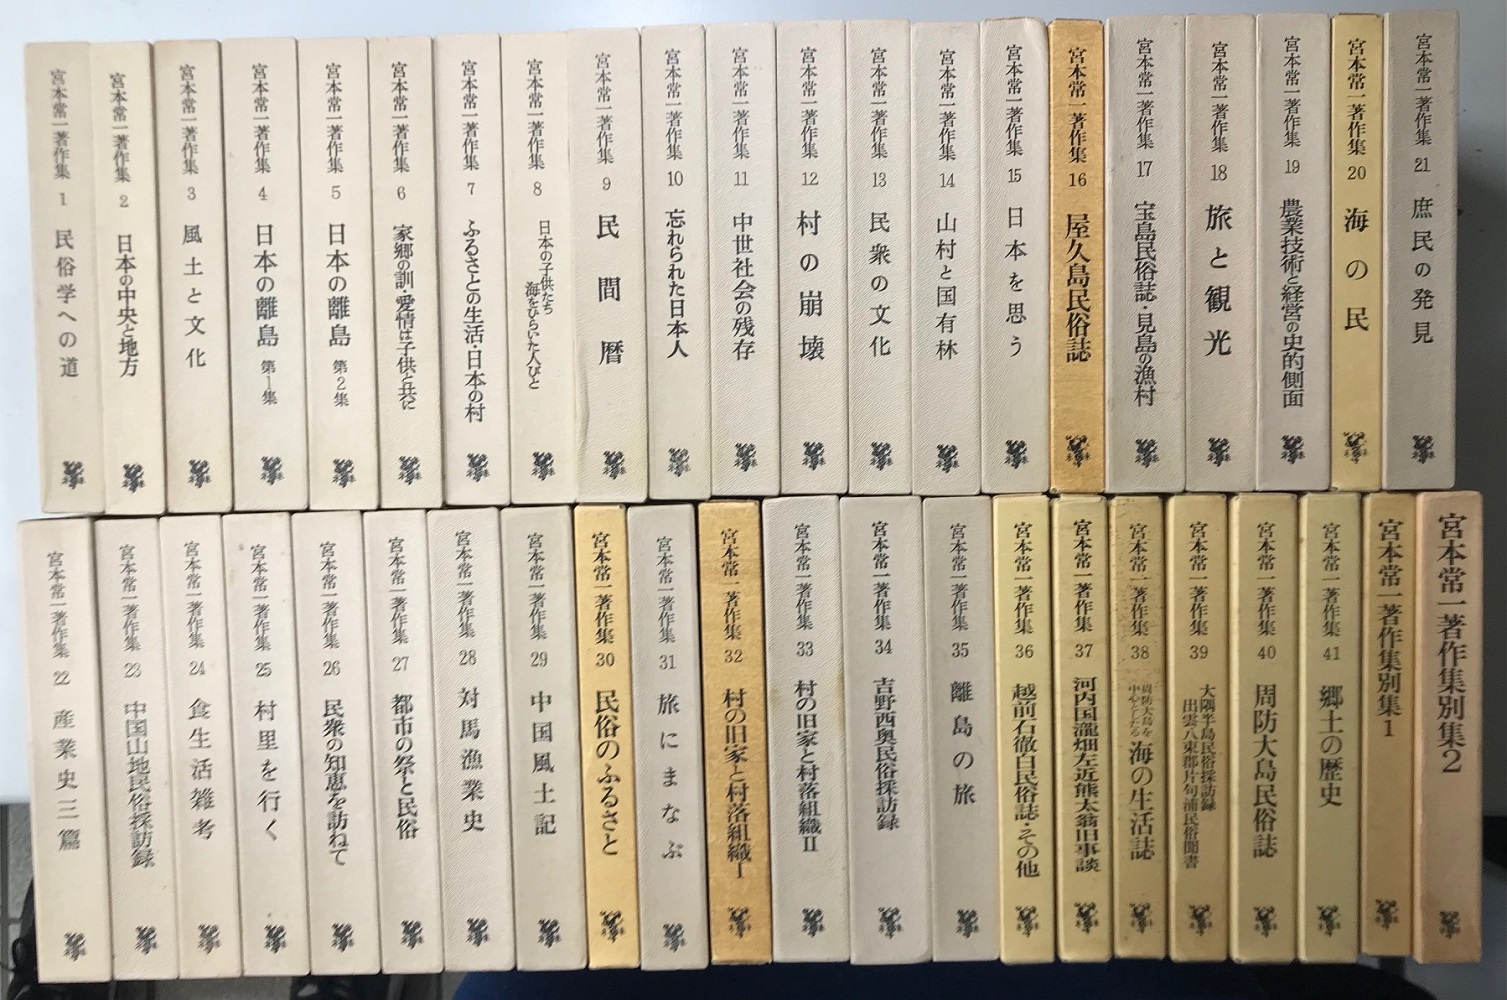 宮本常一著作集 1 民俗学への道
宮本常一著作集 2 日本の中央と地方
宮本常一著作集 3 風土と文化
宮本常一著作集 4 日本の離島 第1集
宮本常一著作集 5 日本の離島 第2集
宮本常一著作集 6 家郷の訓・愛情は子供と共に
宮本常一著作集 7 ふるさとの生活・日本の村
宮本常一著作集 8 日本の子供たち
海をひらいた人びと
宮本常一著作集 9 民間暦
宮本常一著作集 10 忘れられた日本人
宮本常一著作集 11 中世社会の残存
宮本常一著作集 12 村の崩壊
宮本常一著作集 13 民衆の文化
宮本常一著作集 14 山村と国有林
宮本常一著作集 15 日本を思う
宮本常一著作集 16 屋久島民俗誌
宮本常一著作集 17 宝島民俗誌・見島の漁村
宮本常一著作集 18 旅と観光
宮本常一著作集 19 農業技術と経営の史的側面
宮本常一著作集 20 海の民
宮本常一著作集 21 庶民の発見
宮本常一著作集 22 産業史三篇
宮本常一著作集 23 中国山地民俗採訪録
宮本常一著作集 24 食生活雑考
宮本常一著作集 25 村里を行く
宮本常一著作集 26 民衆の知恵を訪ねて
宮本常一著作集 27 都市の祭と民俗
宮本常一著作集 28 対馬漁業史
宮本常一著作集 29 中国風土記
宮本常一著作集 30 民俗のふるさと
宮本常一著作集 31 旅にまなぶ
宮本常一著作集 32 村の旧家と村落組織Ⅰ
宮本常一著作集 33 村の旧家と村落組織Ⅱ
宮本常一著作集 34 吉野西奥民俗採訪録
宮本常一著作集 35 離島の旅
宮本常一著作集 36 越前石徹白民俗誌・その他
宮本常一著作集 37 河内国瀧畑左近熊太翁旧事談
宮本常一著作集 38 周防大島を
中心としたる 海の生活誌
宮本常一著作集 39 大隅半島民俗採訪録
出雲八束郡片句浦民俗聞書
宮本常一著作集 40 周防大島民俗誌
宮本常一著作集 41 郷土の歴史
宮本常一著作集別集1
宮本常一著作集別集2